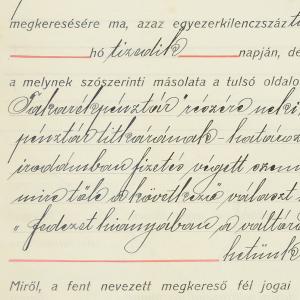 megkeresésére ma, azaz egyezerkilenczszáz
hó tizedik napján, de
a melynek szószerinti másolata a tulsó oldalo
Takarékpénztár részére neki,
pénztár titkárának - határoz
irodámban fizetés végett szem
mire tőle a következő választ
„fedezet hiányában a váltó
hetünk
Miről, a fent nevezett megkereső fél jogai